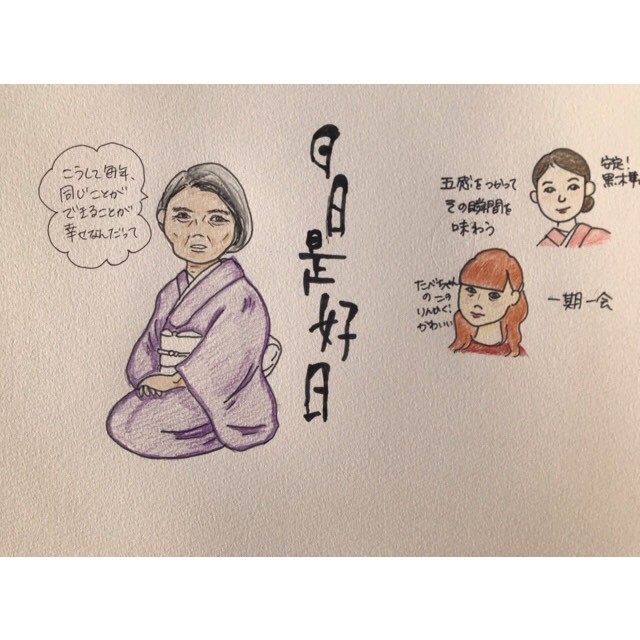 こうして毎年、
同じことが
できることが
幸せなんだって
日日是好日
五感をつかって
その瞬間を
味わう
安定!
黒木華
たべちゃん
の この
りんかく!
かわいい
一期一会